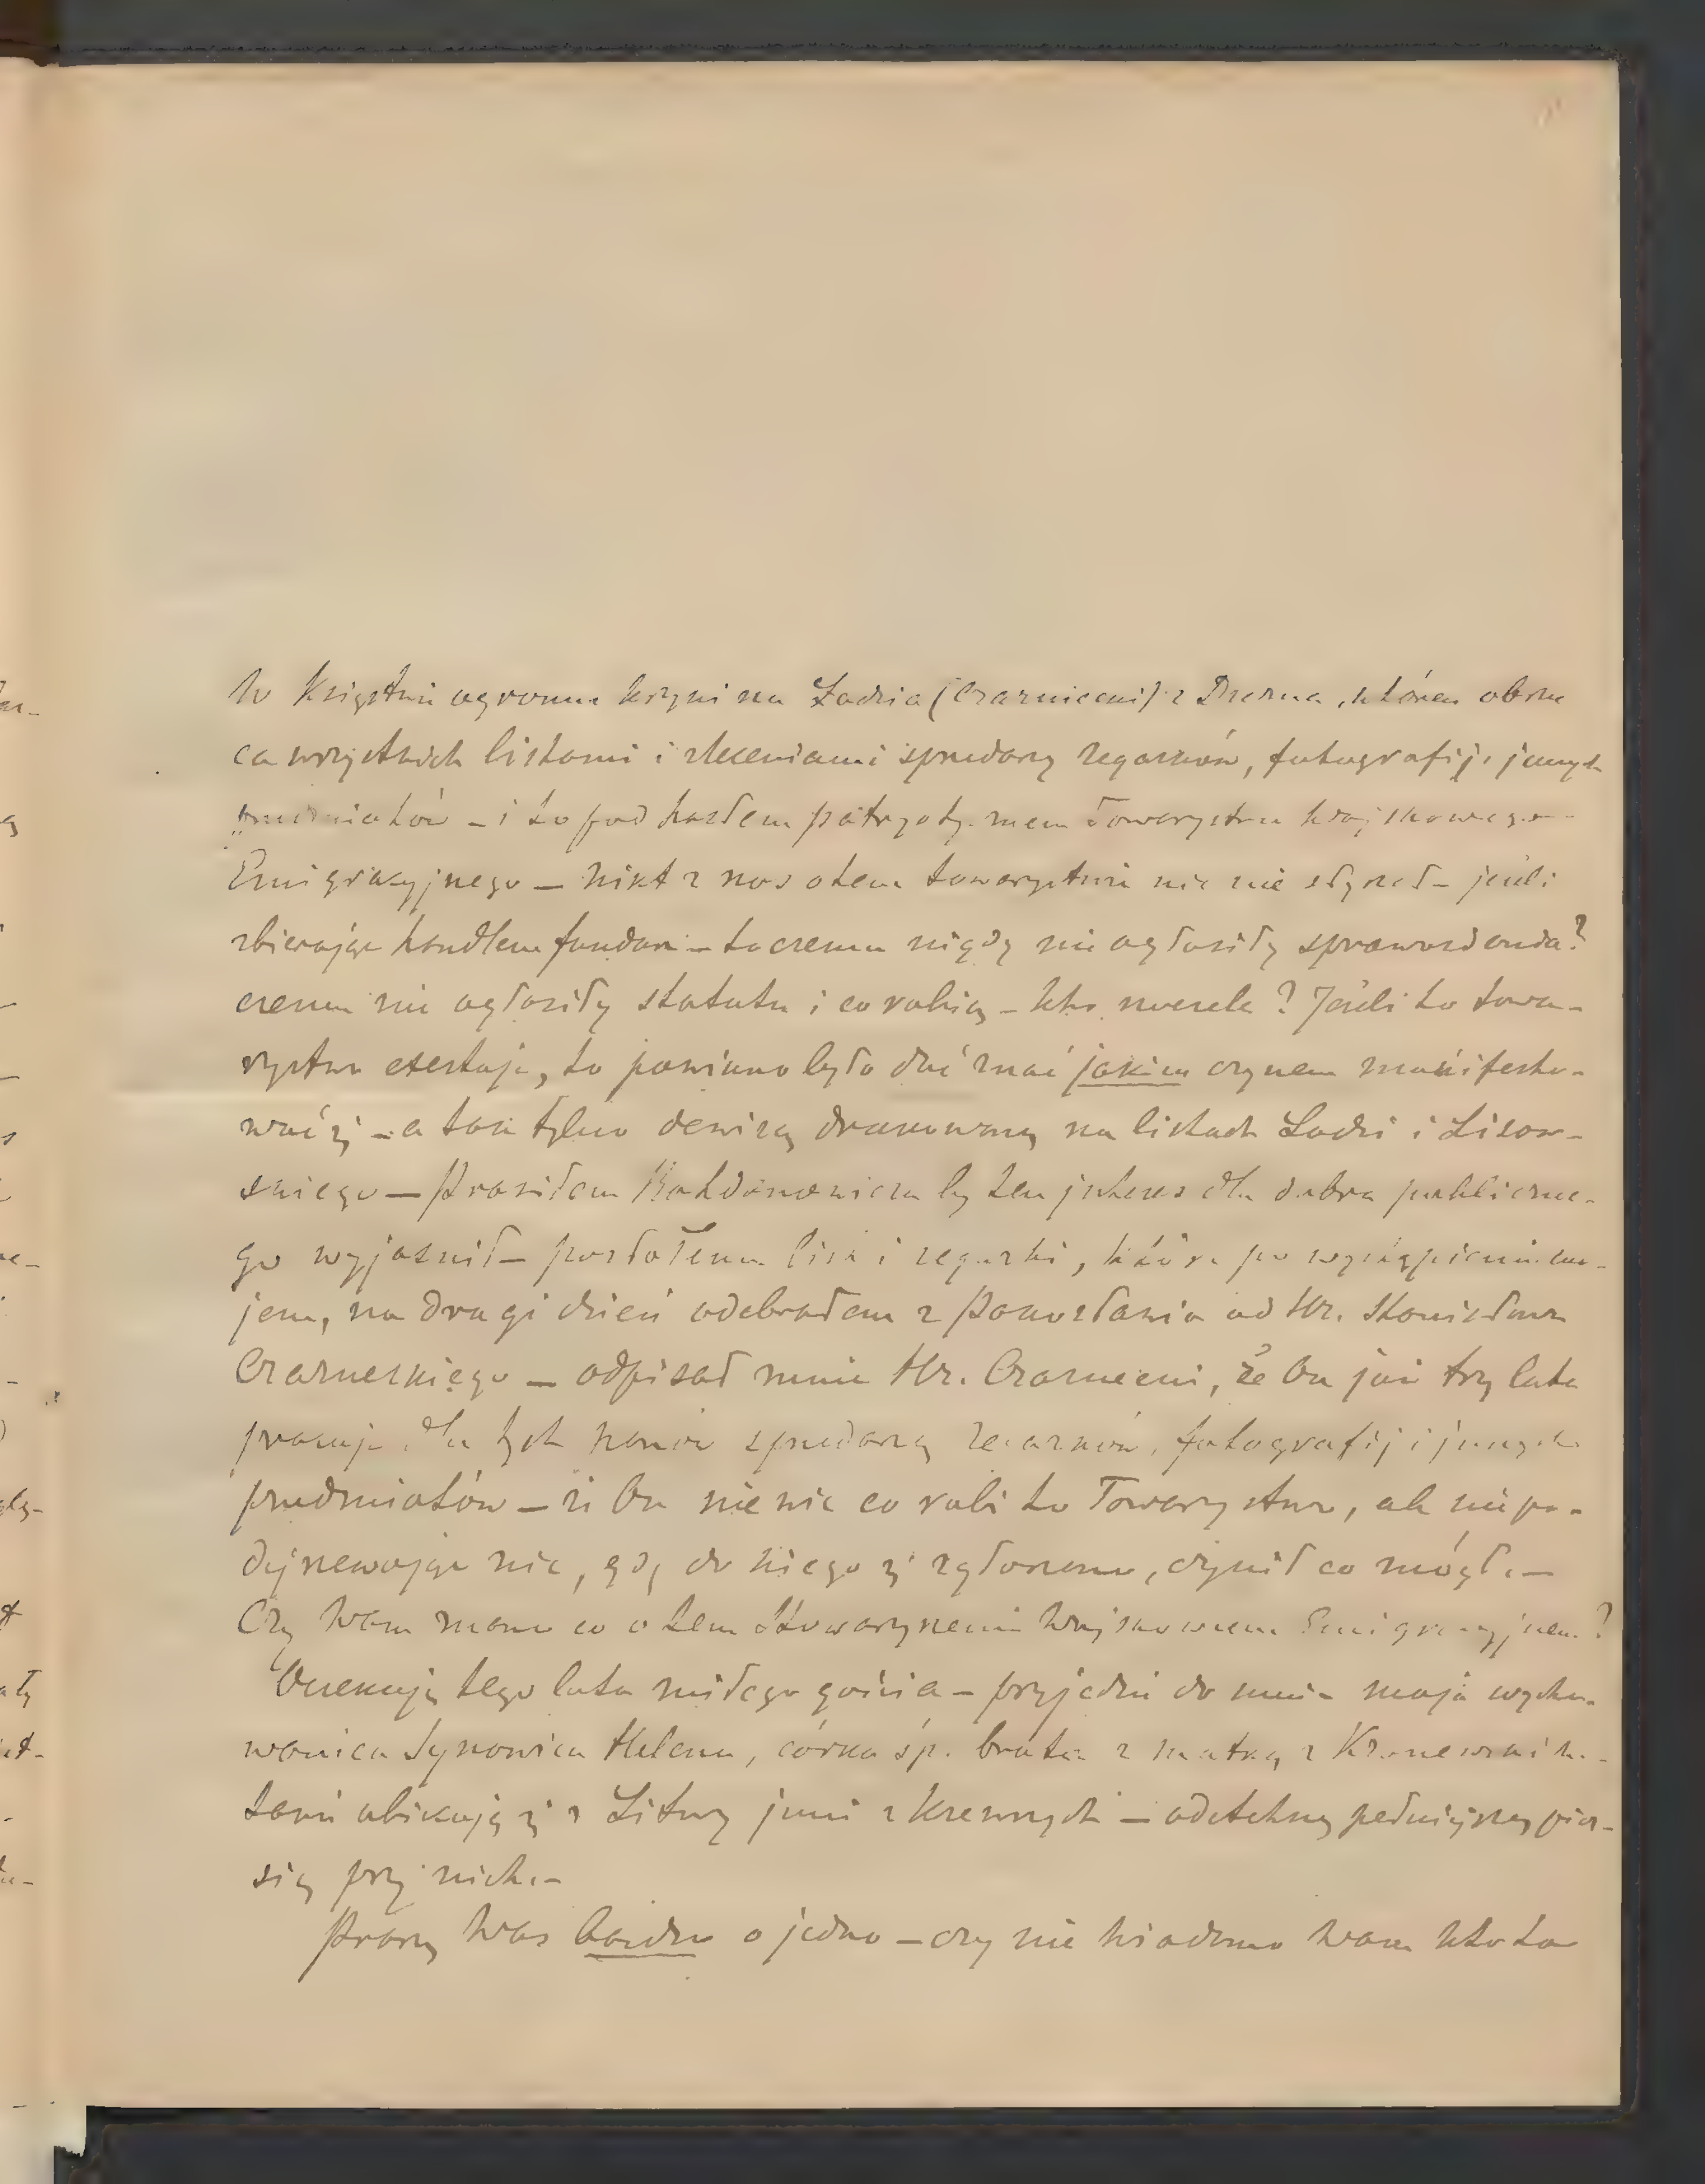 W Księstwie ogromne krzyki na Ładzia (Czarniecki) z Drezna, którem obrzu
ca wszystkich listami i zleceniami sprzedarzy zegarków, fotografij i jnnych
przedmiotów – i to pod hasłem patryotyzmem Towarzystwa Wojskowego –
Emigracyjnego – nikt z nas o tem towarzystwie nic nie słyszał – jeśli
zbierają handlem fundusz – to czemu nigdy nie ogłosiły sprawozdania?
czemu nie ogłosiły statutu i co robią – kto na czele? Jeśli to towa-
rzystwo exestuje, to powinno było dać znać jakim czynem manifesto-
wać się – a tak tylko dewizą drukowaną na listach Ładzi i Lisow-
skiego – Prosiłem Bohdanowicza by ten jnteres dla dobra publiczne-
go wyjaśnił – posłałem list i zegarki, które po wystąpieniu mo-
jem, na drugi dzień odebrałem z Pozwania od Hr. Stanisława
Czarneckiego – odpisał mnie Hr. Czarnecki, że On już trzy lata
pracuje dla tych Panów sprzedarzą zegarków, fotografij i jnnych
przedmiotów – że On nie wie co robi to Towarzystwo, ale niepo-
dejrzewając nic, gdy do niego się zgłoszono, czynił co mógł. –
Czy Wam znane co o tem Stowarzyszeniu Wojskowem Emigracyjnem?
Oczekuję tego lata miłego gościa – przyjedzie do mnie moja wycho-
wanica Synowica Helena, córka śp. brata z matką z Kraszewskich. –
Latoś obiecują się z Litwy jnni z krewnych – odetchnę pełniejszą pier-
sią przy nich. –
Proszę Was bardzo o jedno – czy nie wiadomo Wam kto to